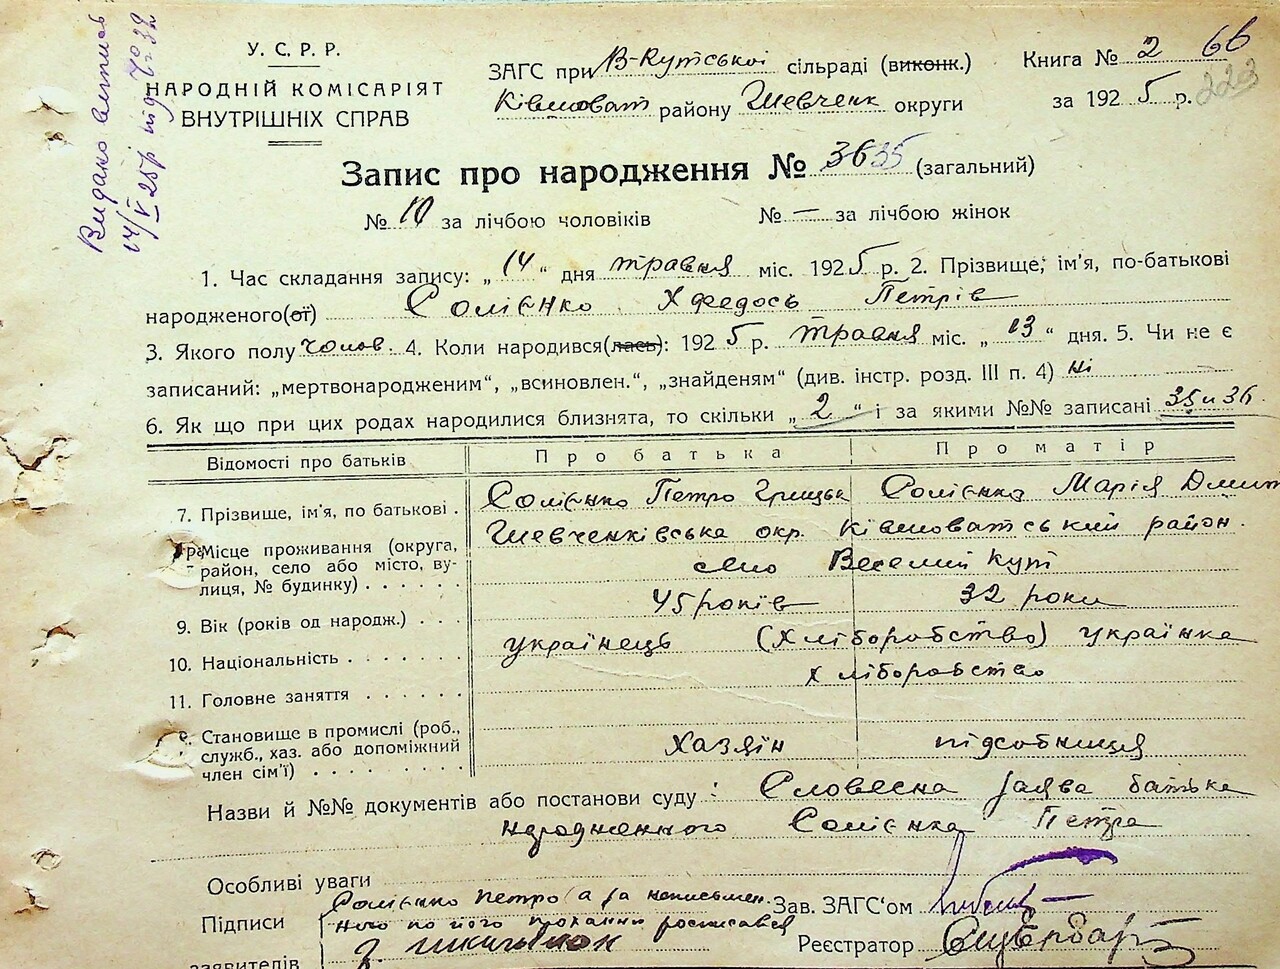 Видано витяг
14/V 25р під № 32
У. С. Р. Р.
НАРОДНІЙ КОМІСАРІЯТ
ВНУТРІШНІХ СПРАВ
ЗАГС при В-Кутській сільраді (виконк.)
Книга № 2 66
Ківшоват району Шевченк округи
за 1925 р. 223
Запис про народження № 3635 (загальний)
№ 10 за лічбою чоловіків № — за лічбою жінок
1. Час складання запису: „14“ дня травня міс. 1925 р. 2. Прізвище, ім'я, по-батькові
народженого(от) Солієнко Хфедось Петрів
3. Якого полу чолов. 4. Коли народився(лась): 1925 р. травня міс. „13“ дня. 5. Чи не є
записаний: „мертвонародженим“, „всиновлен.“, „знайденям“ (див. інстр. розд. III п. 4) ні
6. Як що при цих родах народилися близнята, то скільки „2“ і за якими №№ записані 35 и 36.
Відомості про батьків Про батька Про матір
7. Прізвище, ім'я, по батькові . Солієнко Петро Грицьк Солієнка Марія Дмит
Місце проживання (округа, район, село або місто, вулиця, № будинку) . . . . . Шевченківська окр. Ківшоватський район.
село Веселий Кут
9. Вік (років од народж.) . . . 45 років 32 роки
10. Національність . . . . . . українець (хліборобство) українка
11. Головне заняття . . . . . . хліборобство
Становище в промислі (роб., служб., хаз. або допоміжний член сім'ї) . . . . . . . . хазяїн підсобниця
Назви й №№ документів або постанови суду: Словесна заява батька
народженного Солієнка Петра
Особливі уваги
Підписи
заявителів
Солієнко Петро а за неписьмен.
нього по його проханню росписався
Зав. ЗАГС'ом
Реєстратор